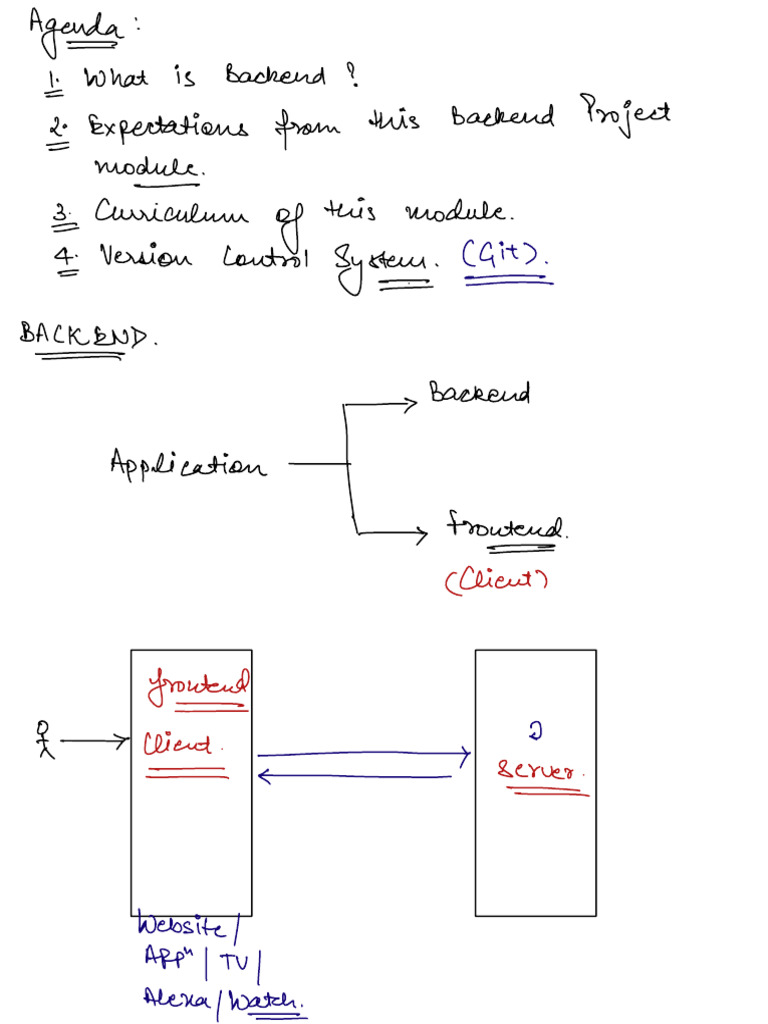 Agenda:
1. What is Backend?
2. Expectations from this Backend Project
module.
3. Curriculum of this module.
4. Version Control System. (Git).
BACKEND.
Backend
Application
frontend.
(Client)
frontend
Client.
Server.
Website/
APPⁿ/TV/
Alexa/Watch.